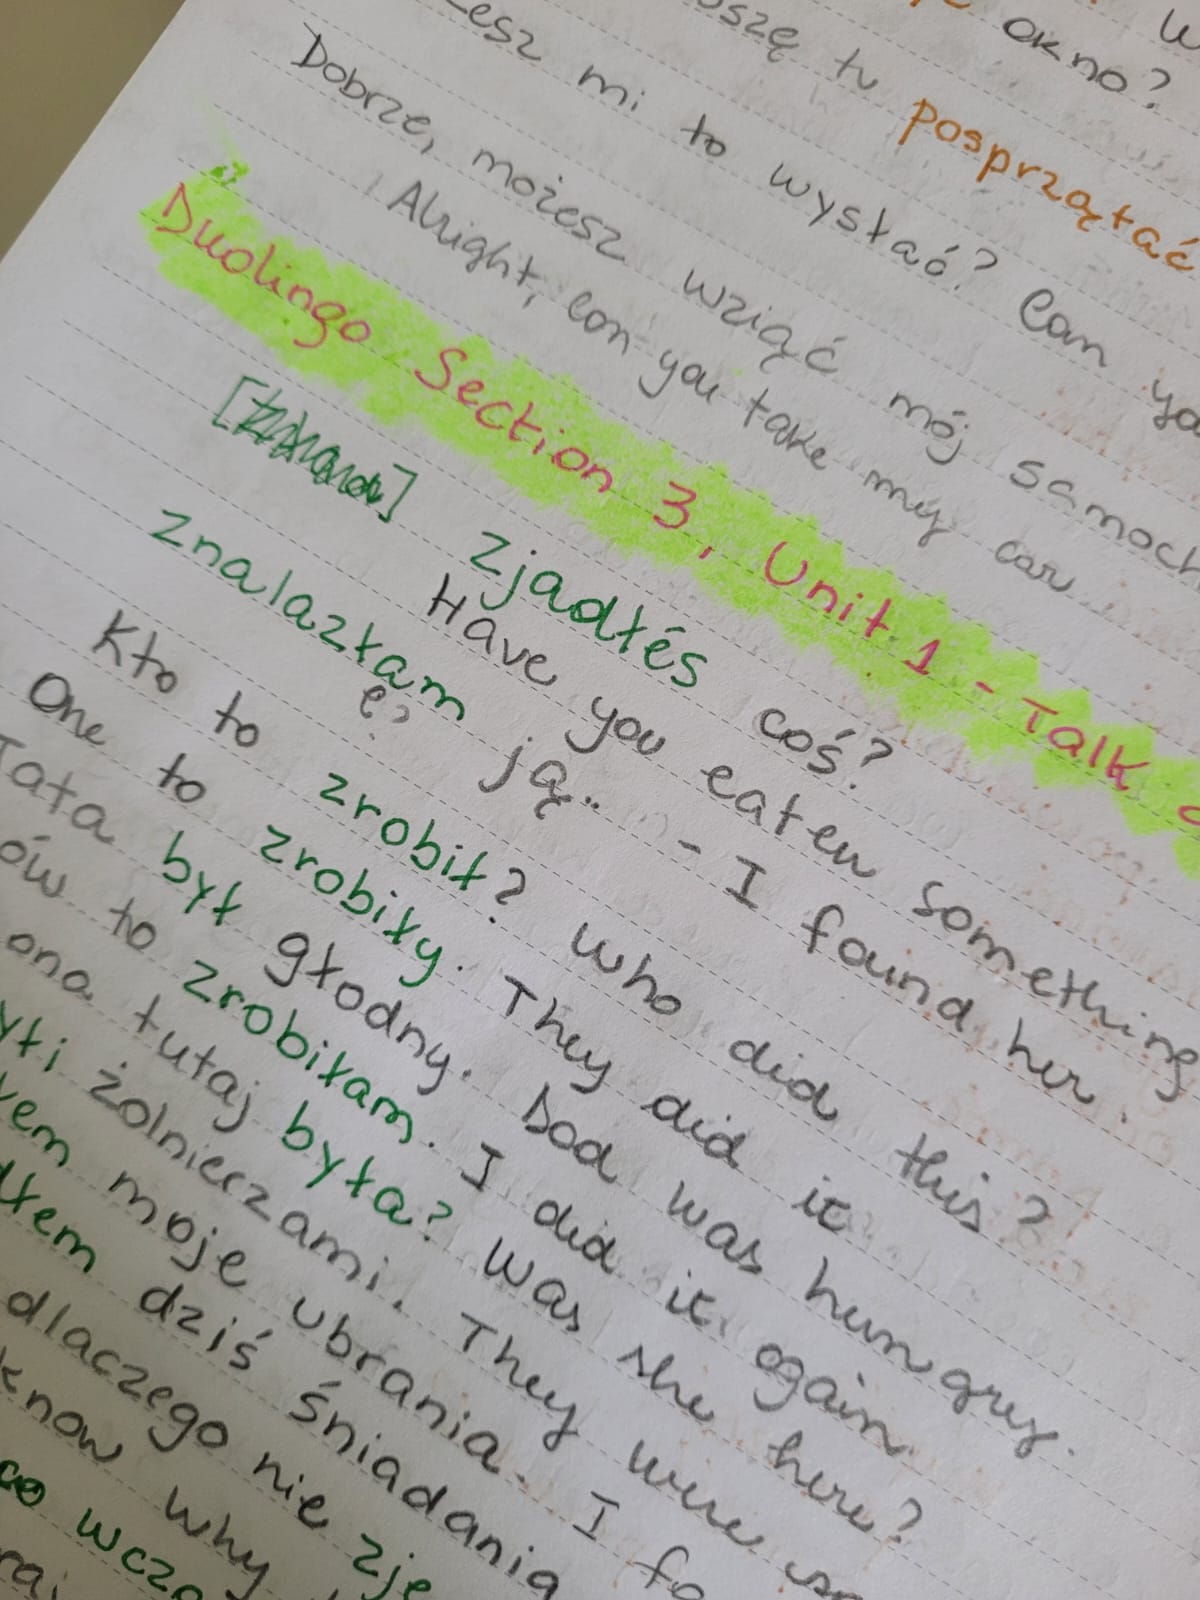 okno?
tu posprzątać
mi to wysłać? Can
Dobrze, możesz wziąć mój samoch
Alright, can you take my car
Duolingo Section 3, Unit 1 - Talk
zjadłéś coś?
Have you eaten something
znalazłam ją.. - I found her.
ę?
Kto to zrobił? Who did this?
One to zrobiły. They did it
Tata był głodny. Dad was hungry.
ów to zrobiłam. I did it again
ona tutaj była? Was she here?
yli żolnierzami. They were
łem moje ubrania. I fo
dłem dziś śniadania
dlaczego nie zje
know why
co wczo